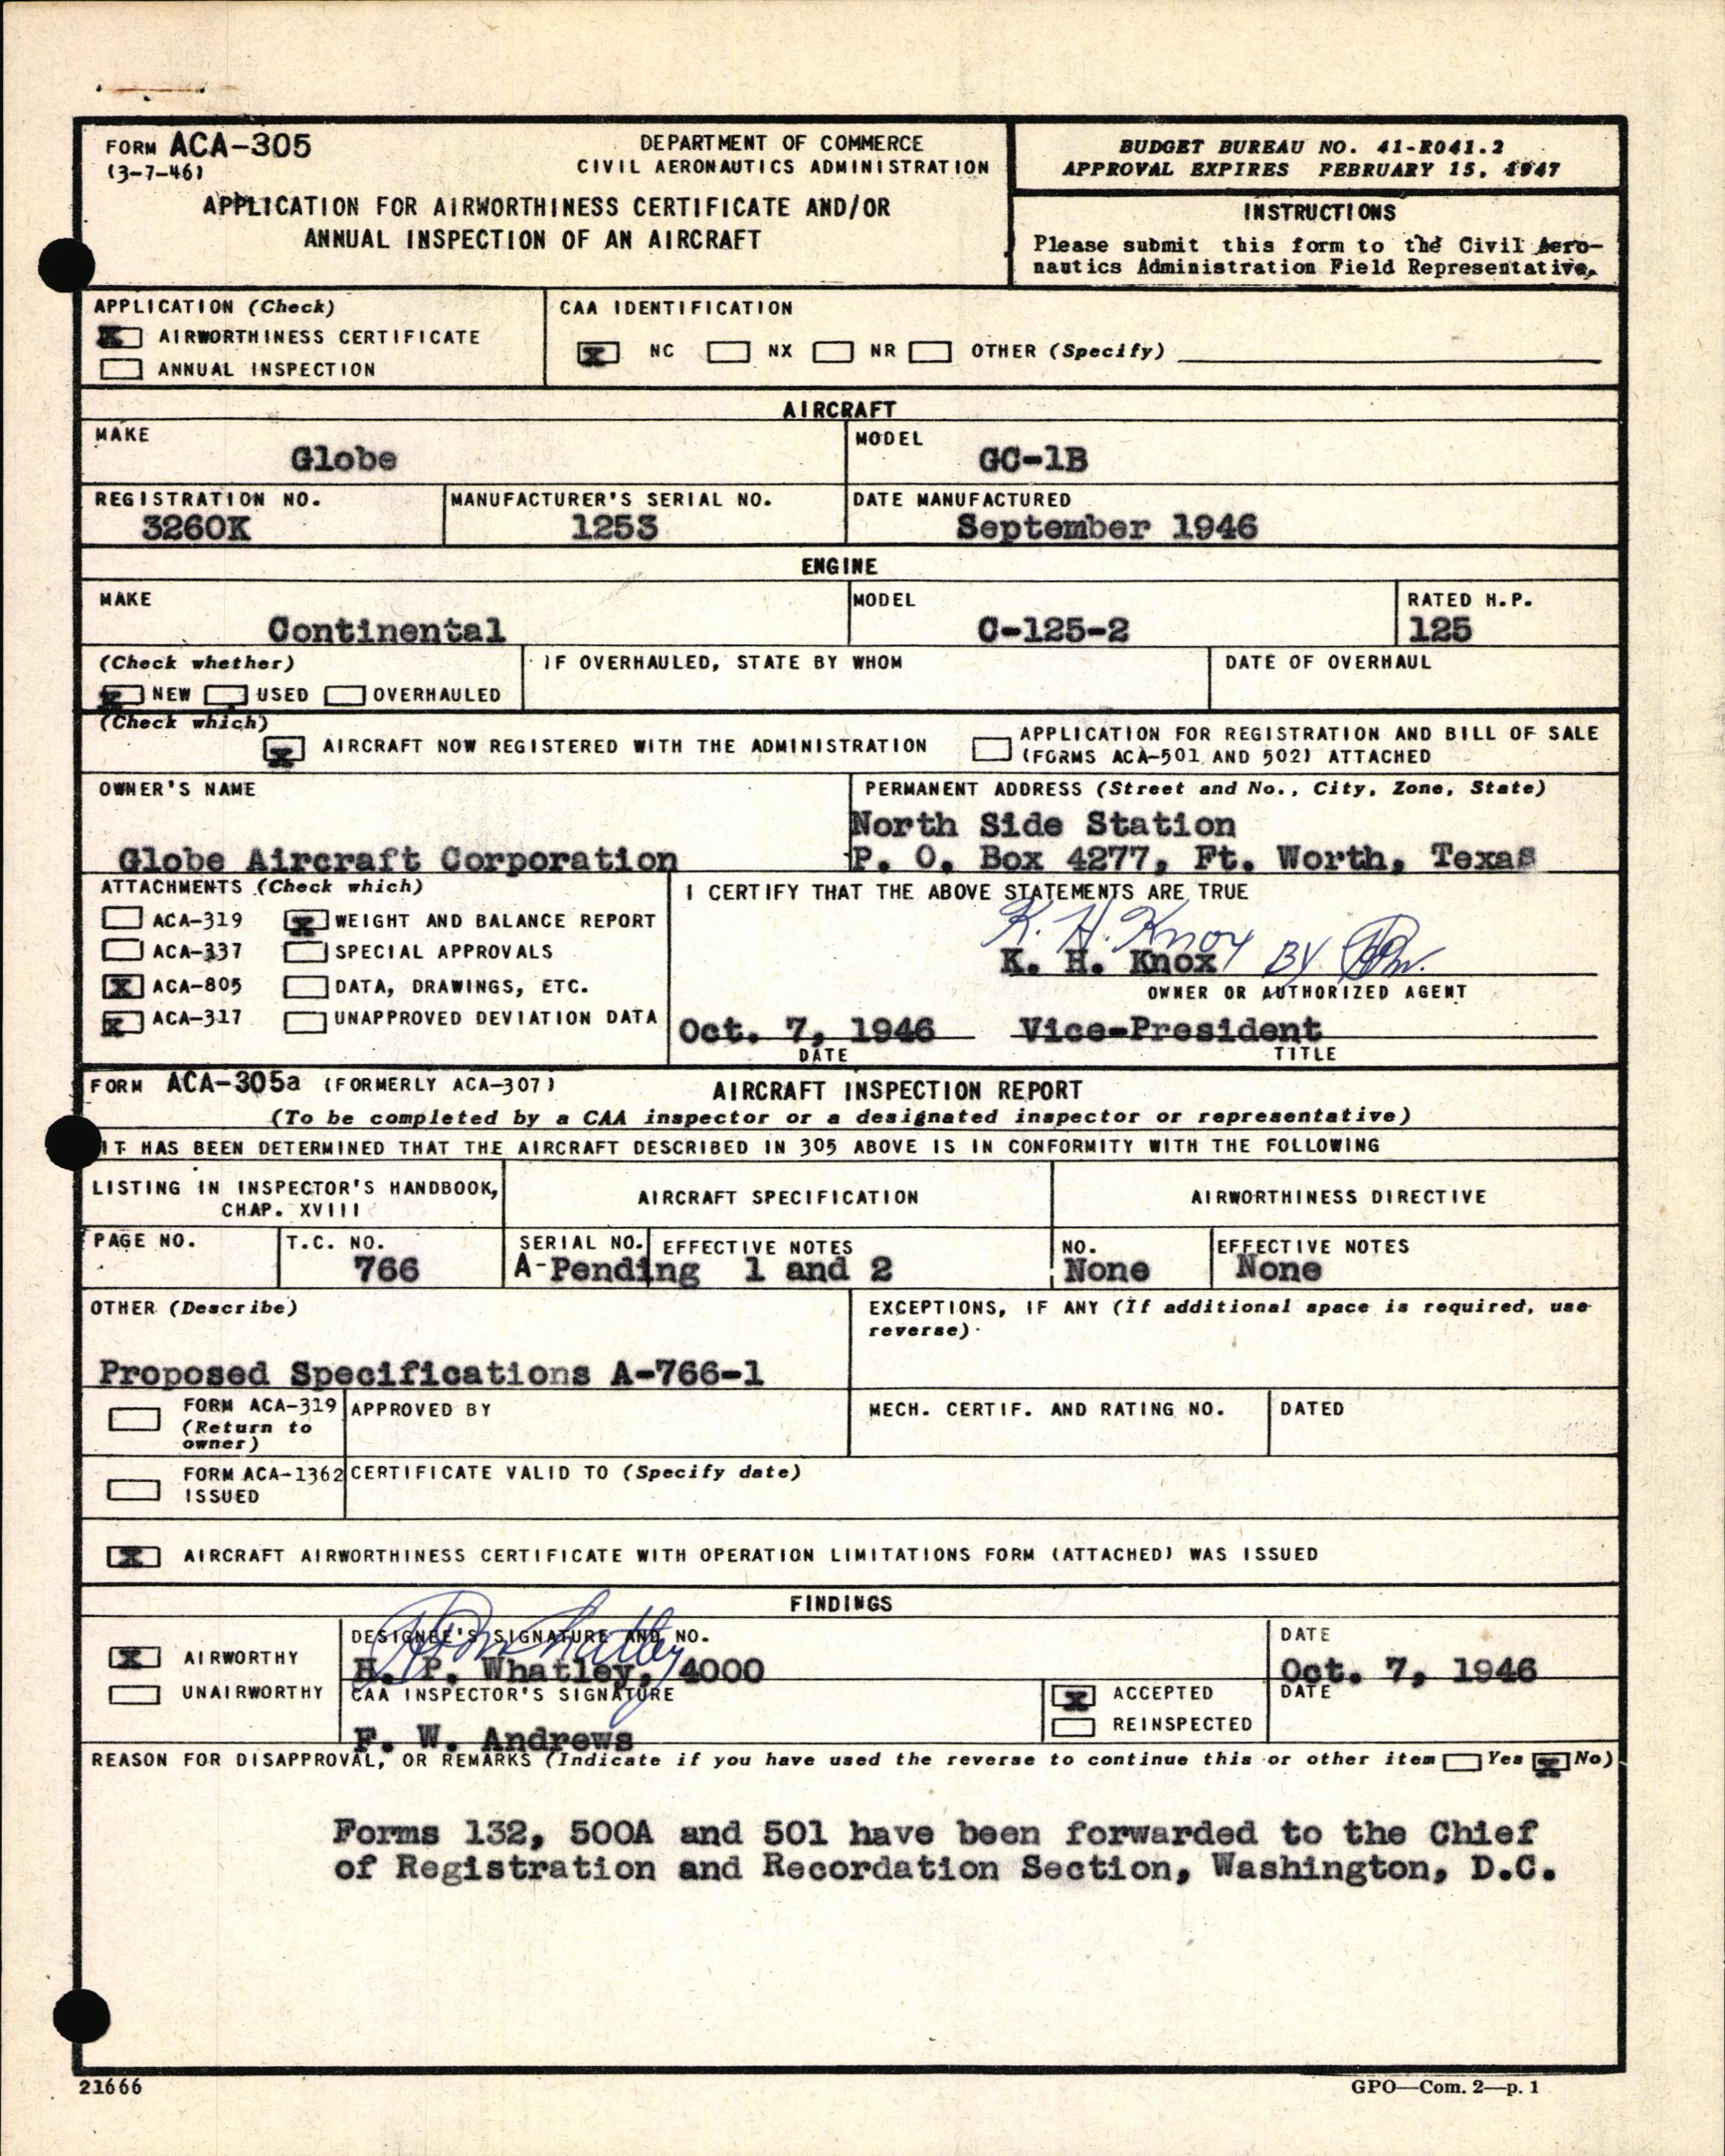 FORM ACA-305
(3-7-46)
DEPARTMENT OF COMMERCE
CIVIL AERONAUTICS ADMINISTRATION
APPLICATION FOR AIRWORTHINESS CERTIFICATE AND/OR
ANNUAL INSPECTION OF AN AIRCRAFT
BUDGET BUREAU NO. 41-R041.2
APPROVAL EXPIRES FEBRUARY 15, 1947
INSTRUCTIONS
Please submit this form to the Civil Aero-
nautics Administration Field Representative.
APPLICATION (Check)
X AIRWORTHINESS CERTIFICATE
ANNUAL INSPECTION
CAA IDENTIFICATION
X NC NX NR OTHER (Specify)
AIRCRAFT
MAKE
Globe
MODEL
GC-1B
REGISTRATION NO.
3260K
MANUFACTURER'S SERIAL NO.
1253
DATE MANUFACTURED
September 1946
ENGINE
MAKE
Continental
MODEL
C-125-2
RATED H.P.
125
(Check whether)
X NEW USED OVERHAULED
IF OVERHAULED, STATE BY WHOM
DATE OF OVERHAUL
(Check which)
X AIRCRAFT NOW REGISTERED WITH THE ADMINISTRATION
APPLICATION FOR REGISTRATION AND BILL OF SALE
(FORMS ACA-501 AND 502) ATTACHED
OWNER'S NAME
Globe Aircraft Corporation
PERMANENT ADDRESS (Street and No., City, Zone, State)
North Side Station
P. O. Box 4277, Ft. Worth, Texas
ATTACHMENTS (Check which)
ACA-319 X WEIGHT AND BALANCE REPORT
ACA-337 SPECIAL APPROVALS
X ACA-805 DATA, DRAWINGS, ETC.
X ACA-317 UNAPPROVED DEVIATION DATA
I CERTIFY THAT THE ABOVE STATEMENTS ARE TRUE
K. H. Knox BY
K. H. Knox
OWNER OR AUTHORIZED AGENT
Oct. 7, 1946 Vice-President
DATE TITLE
FORM ACA-305a (FORMERLY ACA-307) AIRCRAFT INSPECTION REPORT
(To be completed by a CAA inspector or a designated inspector or representative)
IT HAS BEEN DETERMINED THAT THE AIRCRAFT DESCRIBED IN 305 ABOVE IS IN CONFORMITY WITH THE FOLLOWING
LISTING IN INSPECTOR'S HANDBOOK,
CHAP. XVIII
AIRCRAFT SPECIFICATION
AIRWORTHINESS DIRECTIVE
PAGE NO.
T.C. NO.
766
SERIAL NO. EFFECTIVE NOTES
A-Pending 1 and 2
NO.
None
EFFECTIVE NOTES
None
OTHER (Describe)
Proposed Specifications A-766-1
EXCEPTIONS, IF ANY (If additional space is required, use
reverse)
FORM ACA-319
(Return to
owner)
APPROVED BY
MECH. CERTIF. AND RATING NO.
DATED
FORM ACA-1362
ISSUED
CERTIFICATE VALID TO (Specify date)
X AIRCRAFT AIRWORTHINESS CERTIFICATE WITH OPERATION LIMITATIONS FORM (ATTACHED) WAS ISSUED
FINDINGS
X AIRWORTHY
UNAIRWORTHY
DESIGNEE'S SIGNATURE AND NO.
HP Whatley
H. P. Whatley, 4000
DATE
Oct. 7, 1946
CAA INSPECTOR'S SIGNATURE
F. W. Andrews
X ACCEPTED
REINSPECTED
DATE
REASON FOR DISAPPROVAL, OR REMARKS (Indicate if you have used the reverse to continue this or other item Yes X No)
Forms 132, 500A and 501 have been forwarded to the Chief
of Registration and Recordation Section, Washington, D.C.
21666
GPO—Com. 2—p. 1